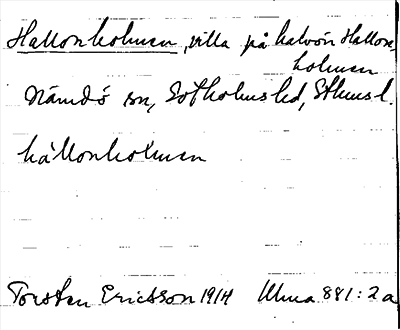 Hallonholmen, villa på halvön Hallon-
holmen
Nämdö sn, Sotholms hd, Sthms l.
hállonholmen
Torsten Ericsson 1914 Ulma 881:2a